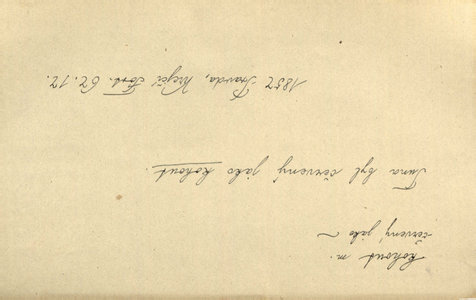 kohout m.
červený jako ~
Tuna byl červený jako kohout.
1857 Pravda, Krejčí Ford. 67.17.